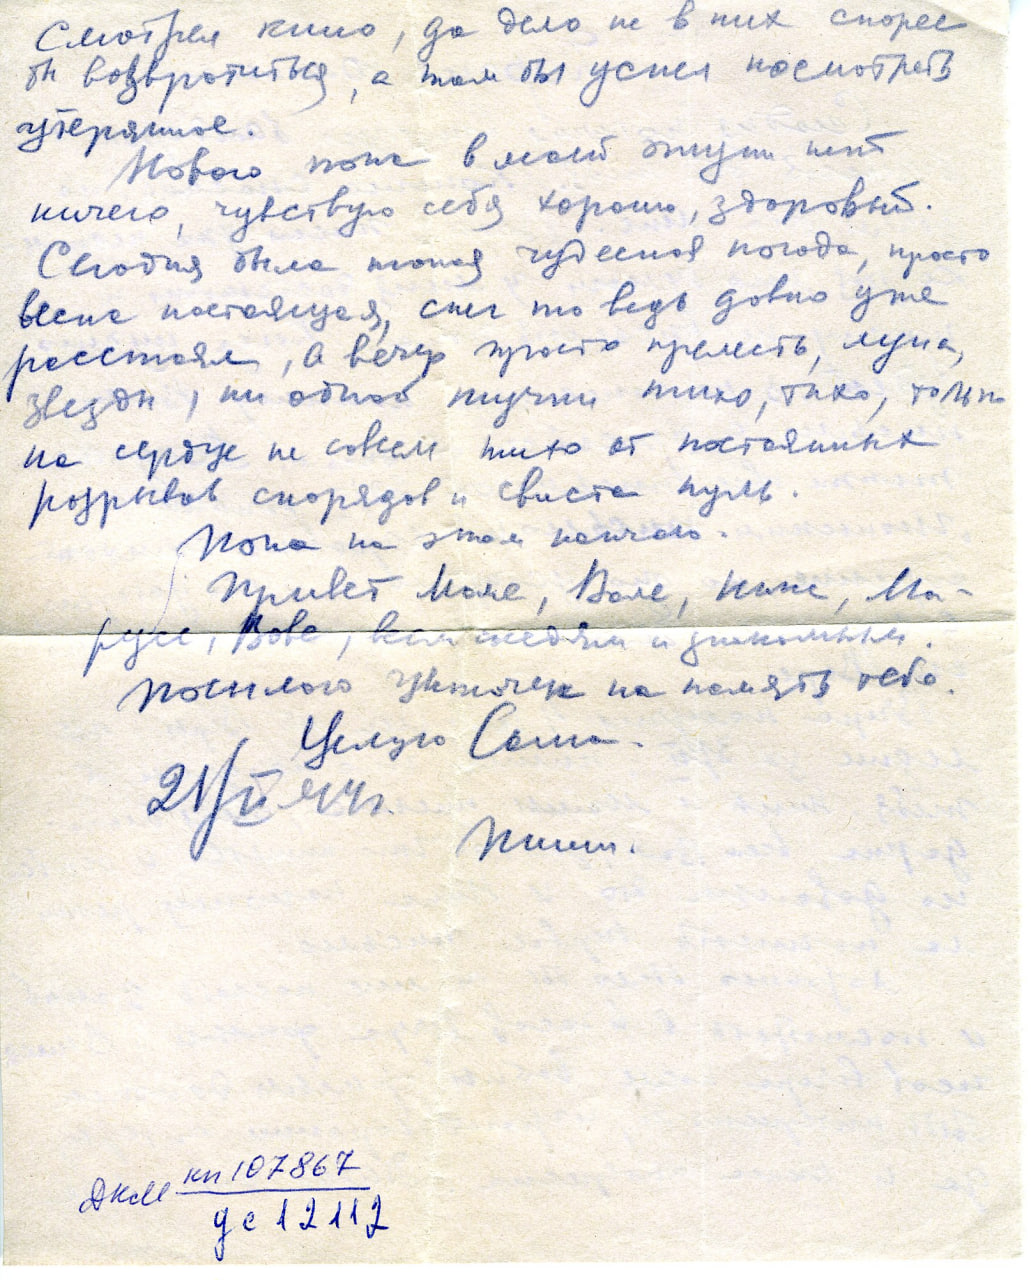 смотрел кино, да дело не в них скорее
бы возвратиться, а там бы успел посмотреть
утерянное.
Нового пока в моей жизни нет
ничего, чувствую себя хорошо, здоровый.
Сегодня была такая чудесная погода, просто
весна настоящая, снег то ведь давно уже
расстаял, а вечер просто прелесть, луна,
звезды, ни одной тучки тихо, тихо, только
на сердце не совсем тихо от постоянных
розрывов снорядов и свиста пуль.
Пока на этом кончаю.
Привет Моле, Вале, Нине, Ма-
русе, Вове, всем и знакомым.
Посылаю цветочек на память тебе.
Целую Саша.
21/II 44 г.
Пиши.
ДКМ кп 107867
дс 12112